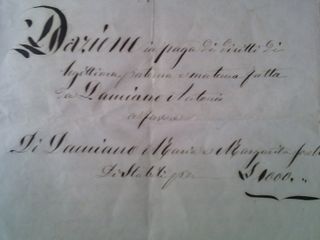 Dazione in paga di diritti di
legittima paterna e materna fatta
da Damiano Antonio
a favore
Di Damiano Maria e Margarita
Di Stabili per £ 1000